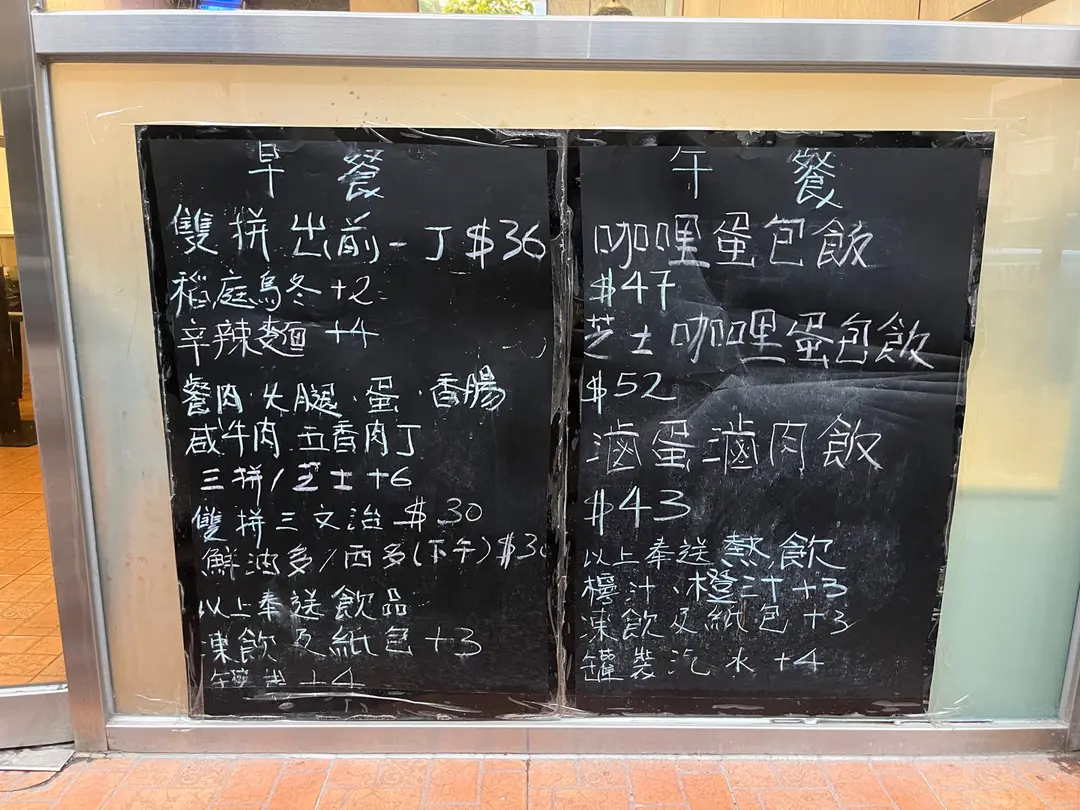 早餐
雙拼出前一丁$36
稻庭烏冬+2
辛辣麵+4
餐肉.火腿.蛋.香腸
咸牛肉 五香肉丁
三拼/芝士+6
雙拼三文治$30
鮮油多/西多(下午)$30
以上奉送飲品
凍飲及紙包+3
+4
午餐
咖哩蛋包飯
$47
芝士咖哩蛋包飯
$52
滷蛋滷肉飯
$43
以上奉送熱飲
檸汁、橙汁+3
凍飲及紙包+3
罐裝汽水+4